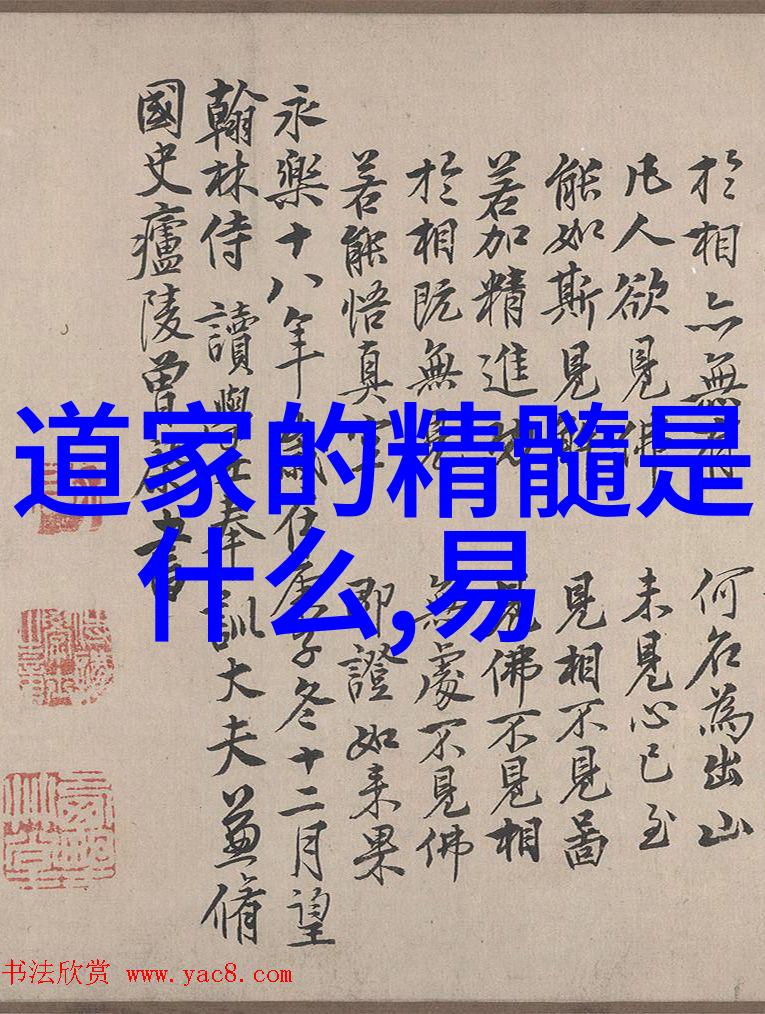 道家的精髓是
什么,易
於相亦無有 何名為出山
凡人欲見佛 未見心已至
能如斯見解 見相不見啚
若加精進 見佛不見相
於相既無見 無處不見佛
若能悟真空 即證如来果
永樂十八年歲在庚子冬十二月望
翰林侍讀學士奉訓大夫兼脩
國史廬陵曾棨書
书法欣赏 www.yac8.com